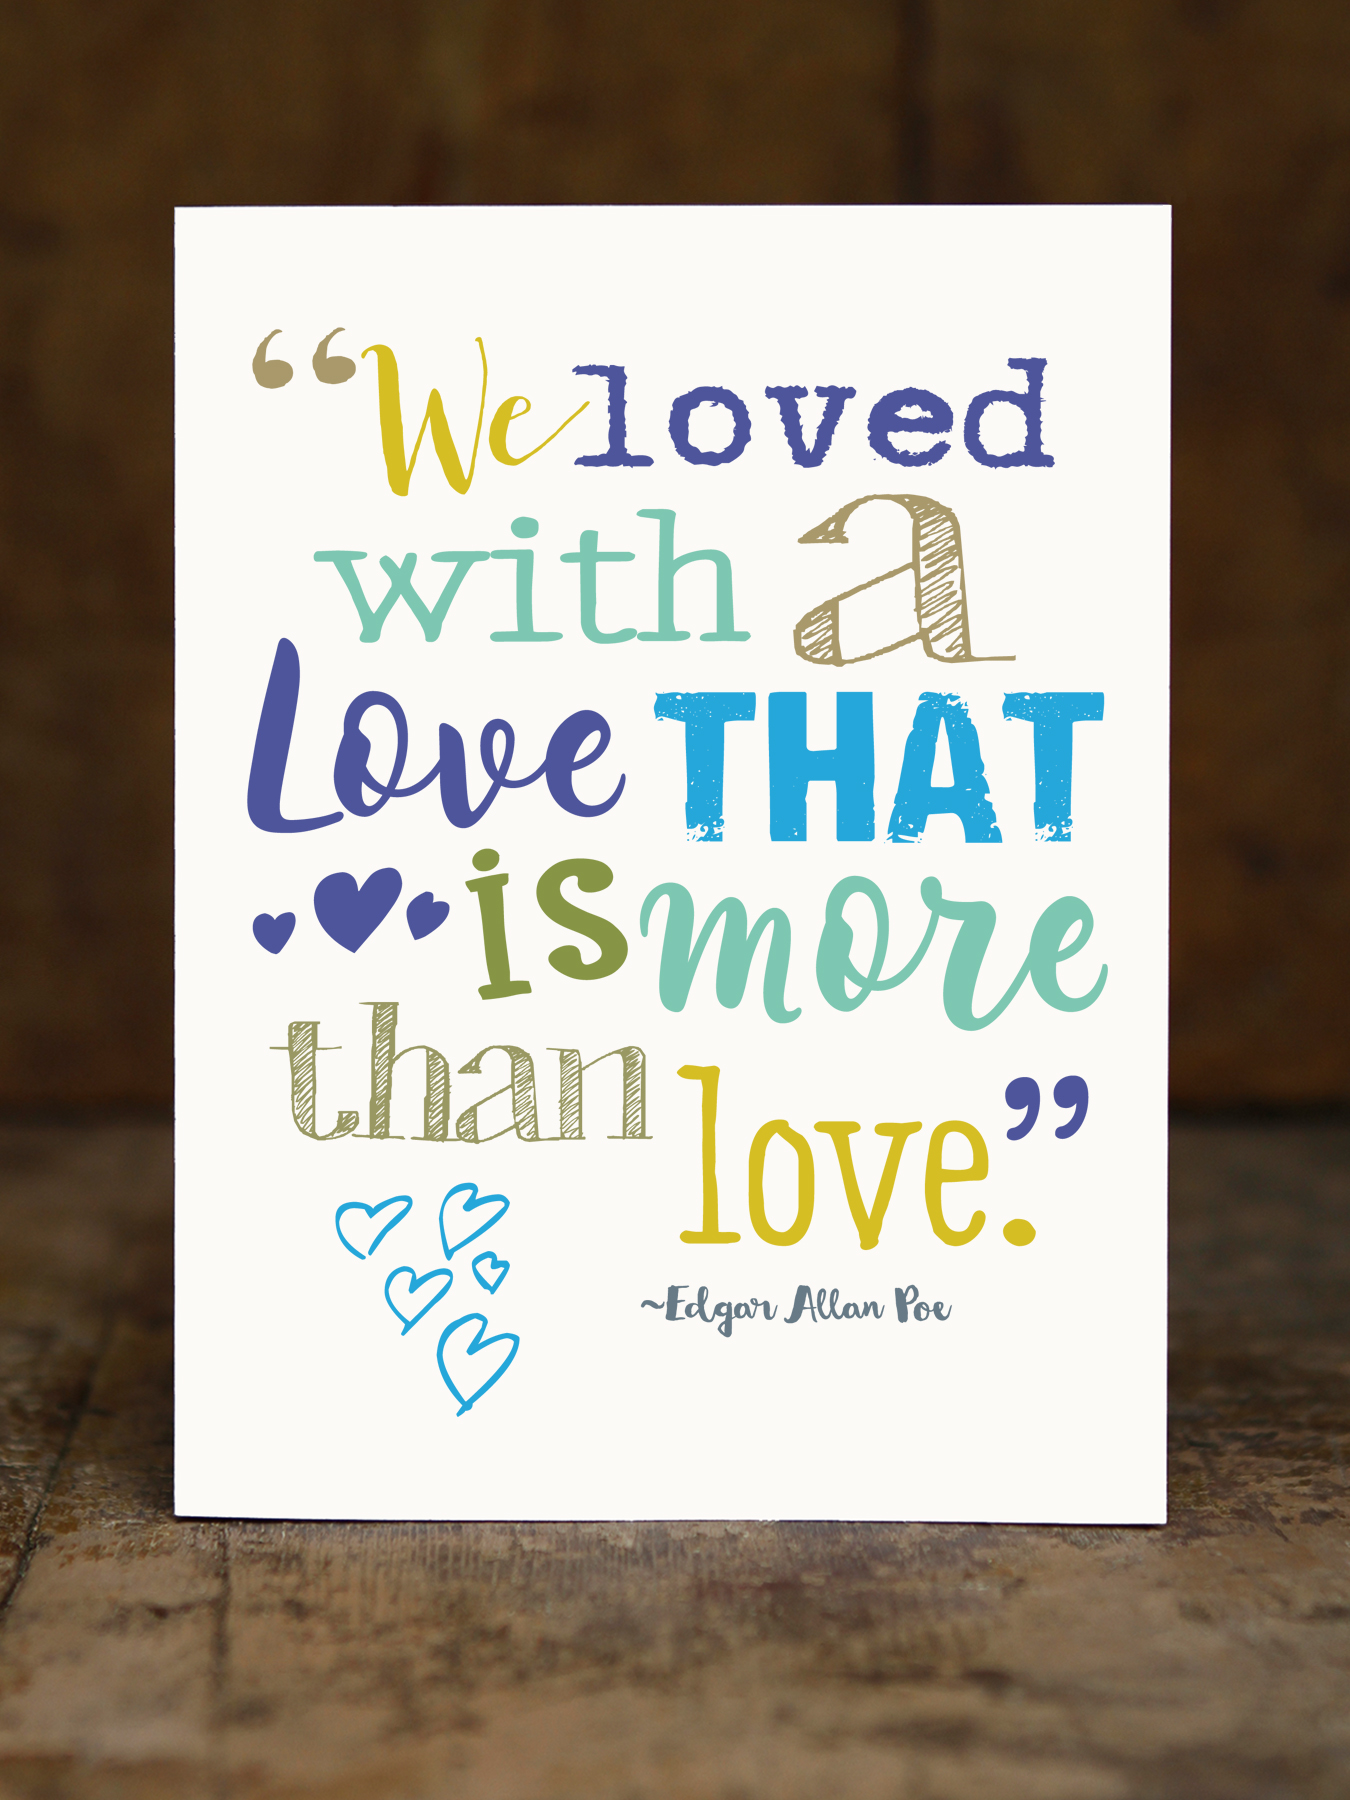 “We loved
with a
Love THAT
is more
than love.”
~Edgar Allan Poe